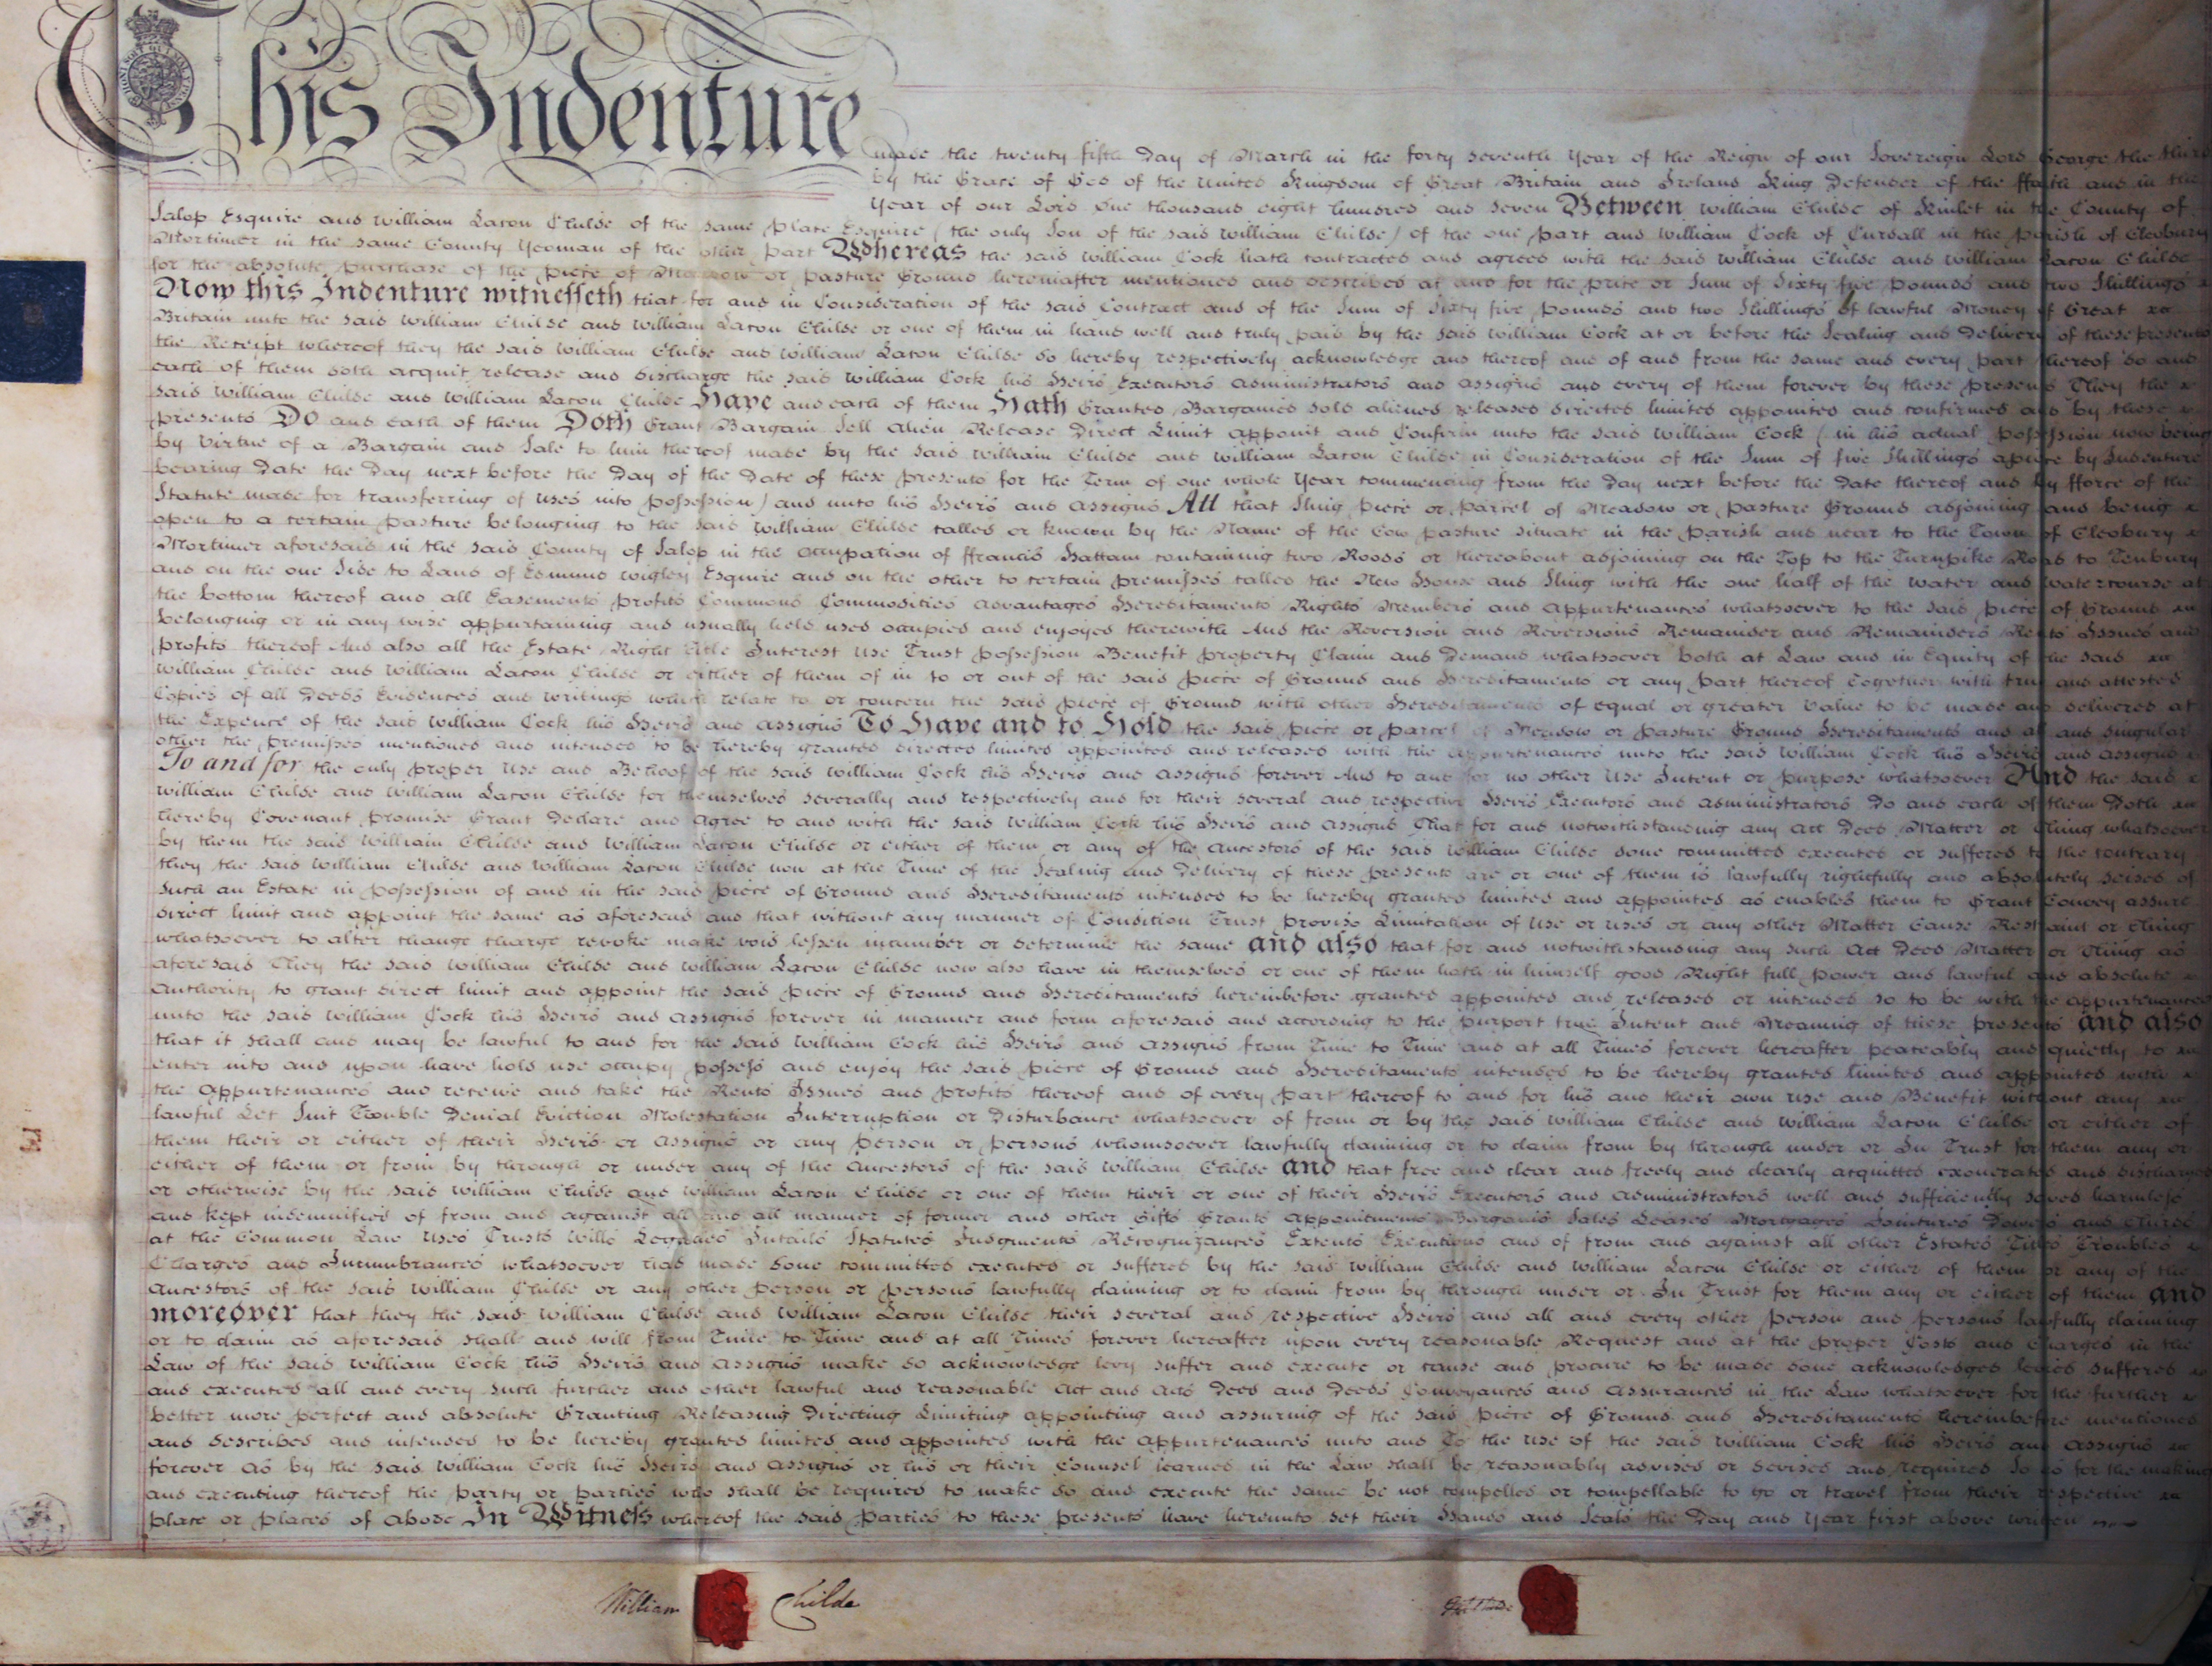 This Indenture
made the twenty fifth Day of March in the forty seventh Year of the Reign of our Sovereign Lord George the third
by the Grace of God of the United Kingdom of Great Britain and Ireland King Defender of the ffaith and in the
Year of our Lord One thousand eight hundred and seven Between William Childe of Kinlet in the County of
Salop Esquire and William Lacon Childe of the same place Esquire (the only Son of the said William Childe) of the one part and William Cock of Cursall in the parish of Cleobury
Mortimer in the same County Yeoman of the other part Whereas the said William Cock hath contracted and agreed with the said William Childe and William Lacon Childe
for the absolute purchase of the piece of Meadow or pasture Ground hereinafter mentioned and described at and for the price or Sum of Sixty five pounds and two Shillings
Now this Indenture witnesseth that for and in Consideration of the said Contract and of the Sum of Sixty five pounds and two Shillings of lawful Money of Great
Britain unto the said William Childe and William Lacon Childe or one of them in hand well and truly paid by the said William Cock at or before the Sealing and Delivery of these presents
the Receipt whereof they the said William Childe and William Lacon Childe do hereby respectively acknowledge and thereof and of and from the same and every part thereof do and
each of them doth acquit release and discharge the said William Cock his Heirs Executors administrators and assigns and every of them forever by these presents They the
said William Childe and William Lacon Childe Have and each of them Hath Granted Bargained sold aliened released directed limited appointed and confirmed and by these
presents Do and each of them Doth Grant Bargain Sell Alien Release Direct Limit appoint and Confirm unto the said William Cock (in his actual possession now being
by Virtue of a Bargain and Sale to him thereof made by the said William Childe and William Lacon Childe in Consideration of the Sum of five Shillings apiece by Indenture
bearing Date the Day next before the Day of the Date of these presents for the Term of one whole Year commencing from the Day next before the Date thereof and by fforce of the
Statute made for transferring of uses into possession) and unto his Heirs and assigns All that Sling piece or parcel of Meadow or pasture Ground adjoining and being
open to a certain pasture belonging to the said William Childe called or known by the Name of the Cow pasture situate in the Parish and near to the Town of Cleobury
Mortimer aforesaid in the said County of Salop in the occupation of ffrancis Hattam containing two Roods or thereabout adjoining on the Top to the Turnpike Road to Tenbury
and on the one Side to Land of Edmund Wigley Esquire and on the other to certain premisses called the New House and Sling with the one half of the water and watercourse at
the bottom thereof and all Easements profits Commons Commodities advantages Hereditaments Rights Members and appurtenances whatsoever to the said piece of Ground
belonging or in any wise appurtaining and usually held used occupied and enjoyed therewith And the Reversion and Reversions Remainder and Remainders Rents Issues and
profits thereof And also all the Estate Right title Interest Use Trust possession Benefit property Claim and Demand whatsoever both at Law and in Equity of the said
William Childe and William Lacon Childe or either of them of in to or out of the said piece of Ground and Hereditaments or any part thereof together with true and attested
Copies of all Deeds Evidences and writings which relate to or concern the said piece of Ground with other Hereditaments of equal or greater value to be made and delivered at
the Expence of the said William Cock his Heirs and assigns To Have and to Hold the said piece or parcel of Meadow or pasture Ground Hereditaments and all and singular
other the premisses mentioned and intended to be hereby granted directed limited appointed and released with the appurtenances unto the said William Cock his Heirs and assigns
To and for the only proper Use and Behoof of the said William Cock his Heirs and assigns forever And to and for no other Use Intent or purpose whatsoever And the said
William Childe and William Lacon Childe for themselves severally and respectively and for their several and respective Heirs Executors and administrators do and each of them Doth
hereby Covenant promise Grant Declare and agree to and with the said William Cock his Heirs and assigns That for and notwithstanding any act deed Matter or thing whatsoever
by them the said William Childe and William Lacon Childe or either of them or any of the ancestors of the said William Childe done committed executed or suffered to the contrary
they the said William Childe and William Lacon Childe now at the Time of the Sealing and Delivery of these presents are or one of them is lawfully rightfully and absolutely seised of
such an Estate in possession of and in the said piece of Ground and Hereditaments intended to be hereby granted limited and appointed as enables them to Grant Convey assure
direct limit and appoint the same as aforesaid and that without any manner of Condition Trust proviso Limitation of use or uses or any other Matter Cause Restraint or thing
whatsoever to alter change charge revoke make void lessen incumber or determine the same and also that for and notwithstanding any such act deed Matter or thing as
aforesaid They the said William Childe and William Lacon Childe now also have in themselves or one of them hath in himself good Right full power and lawful and absolute
authority to grant direct limit and appoint the said piece of Ground and Hereditaments hereinbefore granted appointed and released or intended so to be with the appurtenances
unto the said William Cock his Heirs and assigns forever in manner and form aforesaid and according to the purport true Intent and Meaning of these presents and also
that it shall and may be lawful to and for the said William Cock his Heirs and assigns from Time to Time and at all Times forever hereafter peaceably and quietly to
enter into and upon have hold use occupy possess and enjoy the said piece of Ground and Hereditaments intended to be hereby granted limited and appointed with
the appurtenances and receive and take the Rents Issues and profits thereof and of every part thereof to and for his and their own use and Benefit without any
lawful Let Suit Trouble Denial Eviction Molestation Interruption or Disturbance whatsoever of from or by the said William Childe and William Lacon Childe or either of
them their or either of their Heirs or assigns or any person or persons whomsoever lawfully claiming or to claim from by through under or In Trust for them any or
either of them or from by through or under any of the ancestors of the said William Childe and that free and clear and freely and clearly acquitted exonerated and discharged
or otherwise by the said William Childe and William Lacon Childe or one of them their or one of their Heirs Executors and administrators well and sufficiently saved harmless
and kept indemnified of from and against all and all manner of former and other Gifts Grants appointments Bargains Sales Leases Mortgages Jointures Dowers and thirds
at the Common Law Uses Trusts Wills Legacies Intails Statutes Judgments Recognizances Extents Executions and of from and against all other Estates Titles Troubles
Charges and Incumbrances whatsoever had made done committed executed or suffered by the said William Childe and William Lacon Childe or either of them or any of the
ancestors of the said William Childe or any other person or persons lawfully claiming or to claim from by through under or In Trust for them any or either of them and
moreover that they the said William Childe and William Lacon Childe their several and respective Heirs and all and every other person and persons lawfully claiming
or to claim as aforesaid shall and will from Time to Time and at all Times forever hereafter upon every reasonable Request and at the proper Costs and Charges in the
Law of the said William Cock his Heirs and assigns make do acknowledge levy suffer and execute or cause and procure to be made done acknowledged levied suffered
and executed all and every such further and other lawful and reasonable act and acts deed and deeds Conveyances and assurances in the Law whatsoever for the further
better more perfect and absolute Granting Releasing Directing Limiting appointing and assuring of the said piece of Ground and Hereditaments hereinbefore mentioned
and described and intended to be hereby granted limited and appointed with the appurtenances unto and To the use of the said William Cock his Heirs and assigns
forever as by the said William Cock his Heirs and assigns or his or their Counsel learned in the Law shall be reasonably advised or devised and required So as for the making
and executing thereof the party or parties who shall be required to make do and execute the same be not compelled or compellable to go or travel from their respective
place or places of abode In Witness whereof the said parties to these presents have hereunto set their Hands and Seals the Day and Year first above written
William Childe